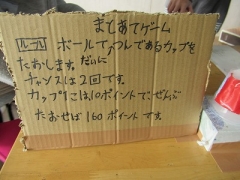 まとあてゲーム
ルール ボールでつんであるカップを
たおします。だいに
チャンスは2回です。
カップ1こは、10ポイントでぜんぶ
たおせば160ポイントです